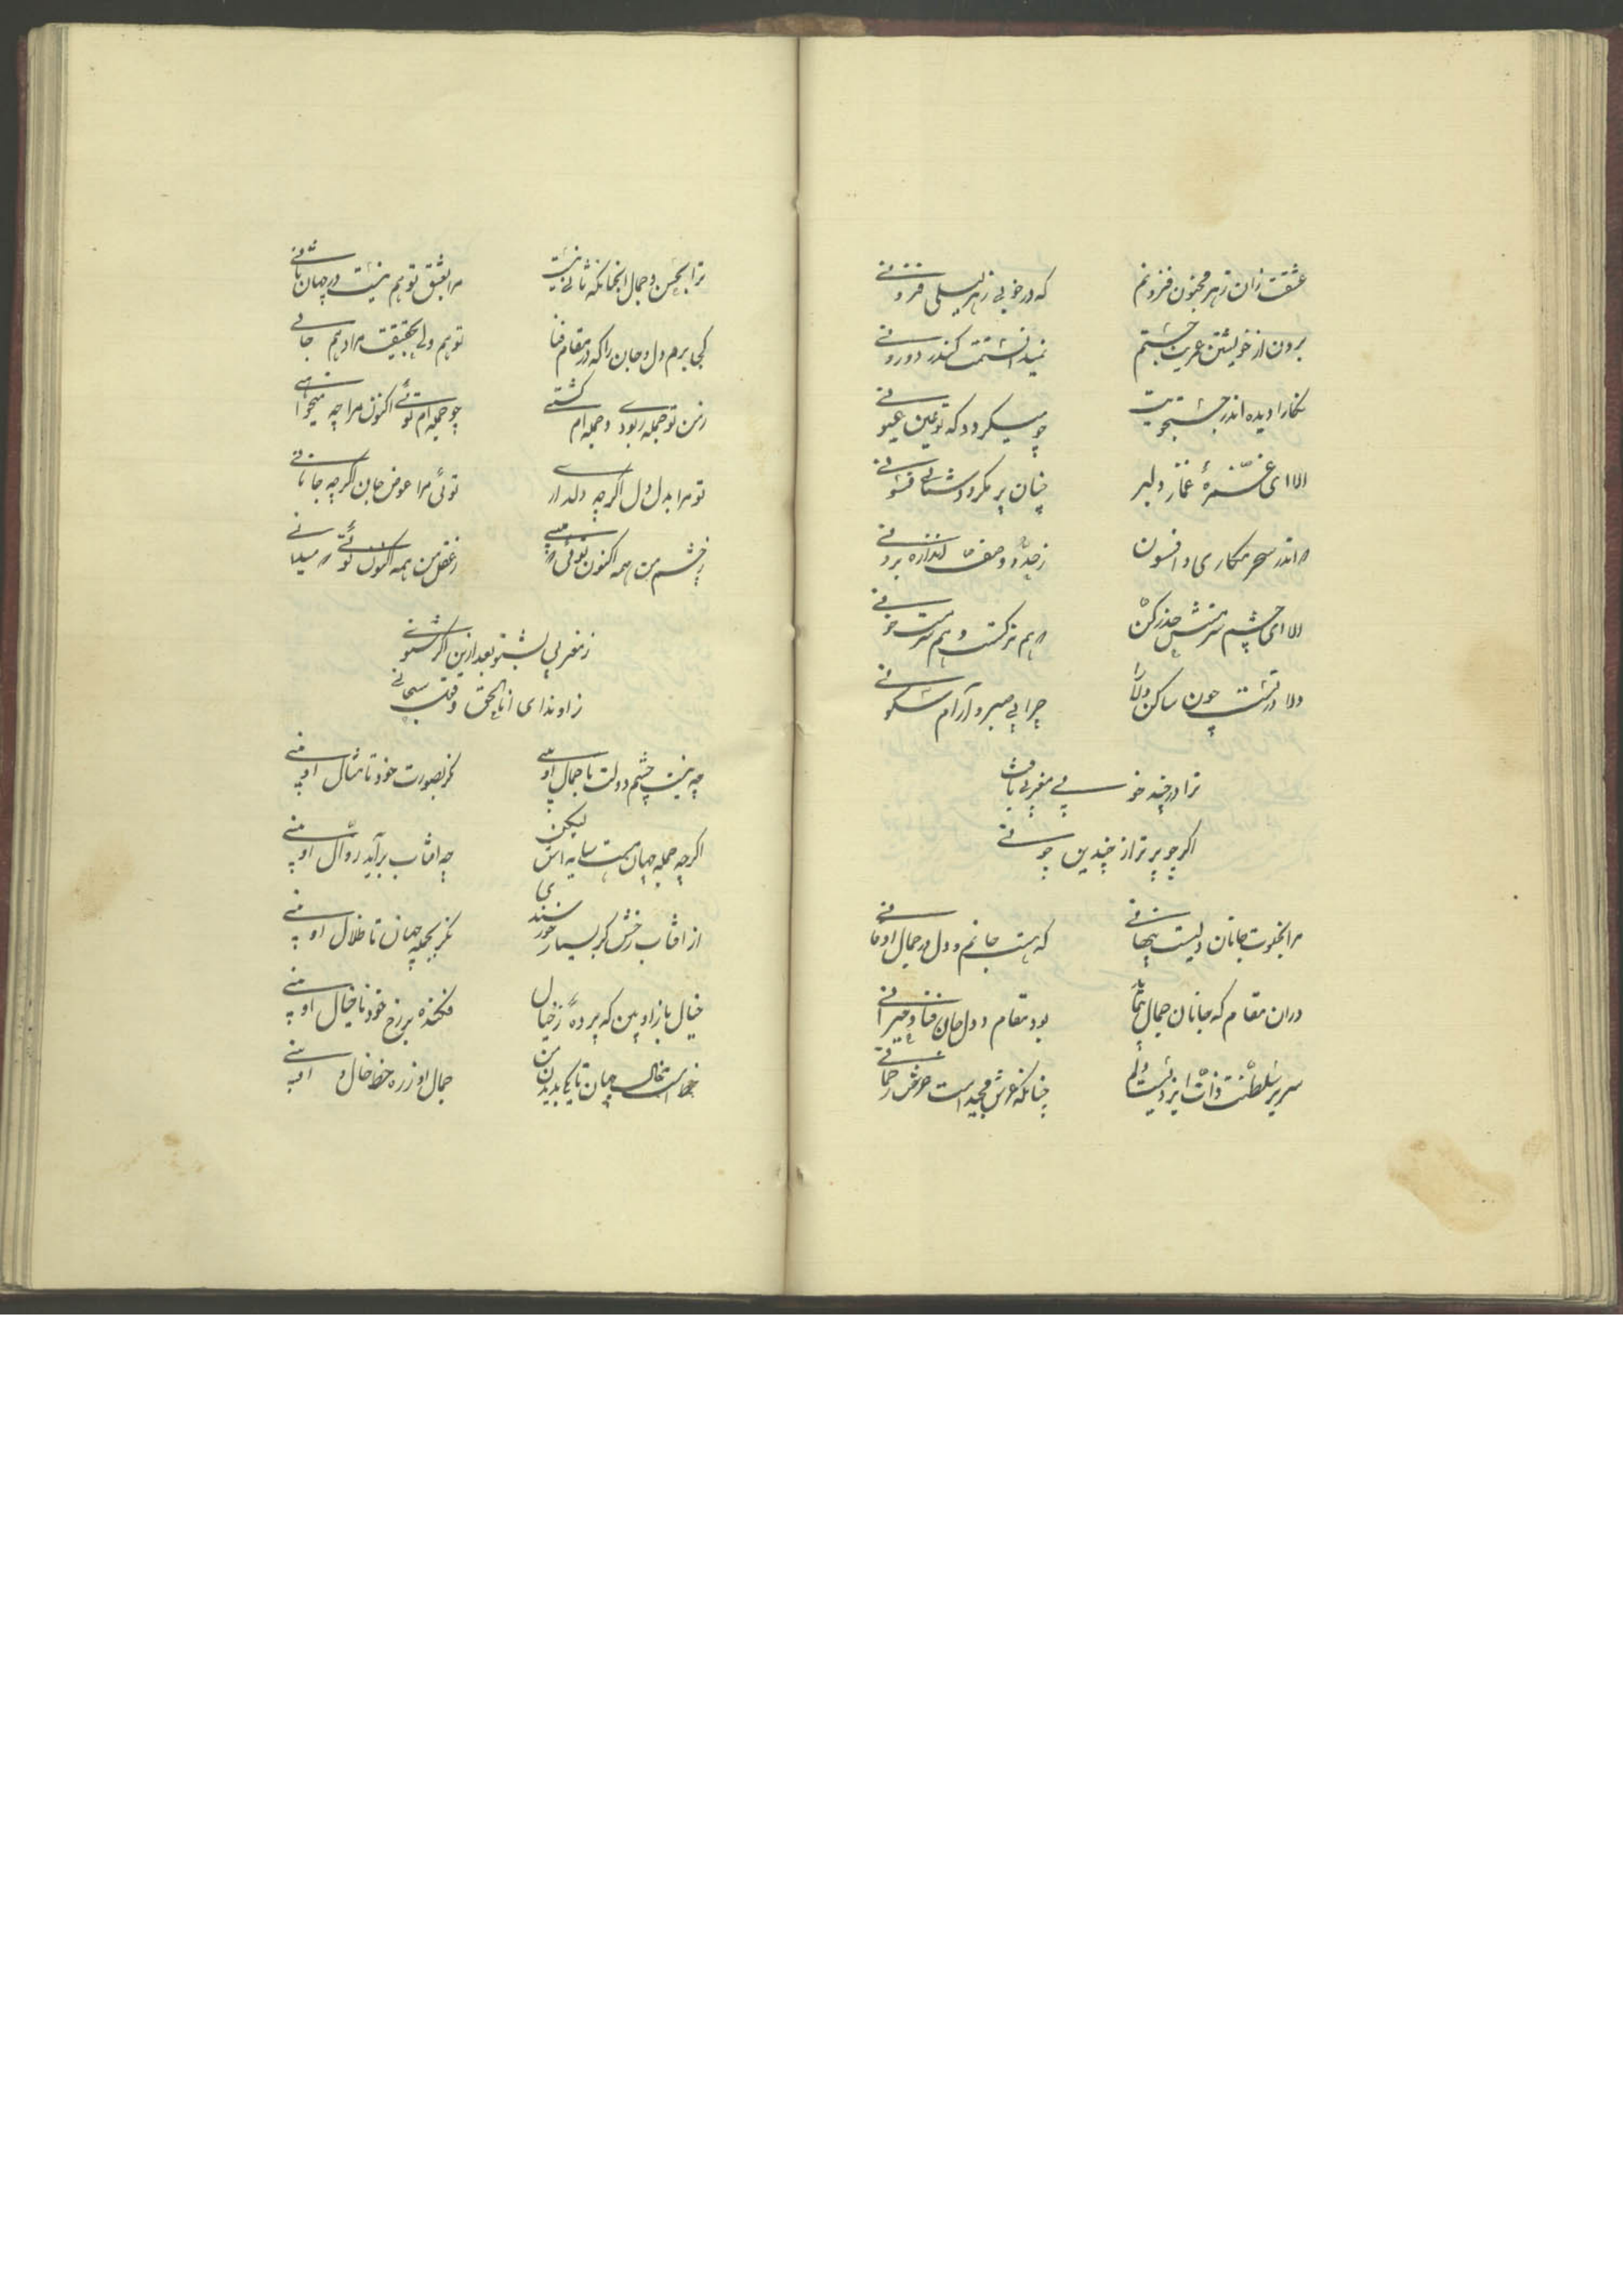 عشقت زان ز هر مجنون فزونم
که در خوبی ز هر لیلی فزونی
برون از خویشتن عمریت جستم
نمیدانستمت کندر درونی
نکارا دیده اندر جستجویت
چو میکردد که تو عین عیونی
الا ای غمزهٔ غماز دلبر
چنان پر مکر و دستانی فسونی
در اندر سحر و مکاری و افسون
ز حد و وصف و اندازه برونی
الا ای چشم سرمستش حذر کن
که هم ترکست و هم سرمست خونی
دلا در شست چون ساکن دلارا
چرا بی صبر و آرام سکونی
ترا در چند خود می مغربی یافت
اگر چو برتر از چندین چونی
مرا بخلوت جانان دلیست پنهانی
که هست جانم و دل در جمال او فانی
در آن مقام که جانان جمال بنماید
بود مقام دل و جان فنا و حیرانی
سریر سلطنت ذات ایزدیست دلم
چنانکه عرش مجید است عرش رحمانی
ترا بحسن و جمال انچنانکه ثانی نیست
مرا بعشق تو هم نیست در جهان ثانی
کجی برم دل و جان را که در مقام فنا
تو هم دلی بحقیقت مرا و هم جانی
ز من تو جمله ربودی و جمله ام کشتی
چو جمله ام توئی اکنون مرا چه میخوانی
تو مرا بدل دل اگرچه دلداری
توئی مرا عوض جان اگرچه جانانی
ز چشم من همه اکنون توئی که می بینی
ز عقل من همه اکنون توئی که میدانی
ز مغربی بشنو بعد ازین اگر شنوی
ز او ندای انا الحق و قول سبحانی
چه نیست چشم و دلت با جمال او بینی
نکر بصورت خود تا مثال او بینی
اگرچه جمله جهان هست سایه اش لیکن
چه افتاب برآید زوال او بینی
از افتاب رخش کر بسیار خورسندی
نکر بجمله جهان تا ظلال او بینی
خیال بازی او بین که پردهٔ ز خیال
فکنده بر رخ خود تا خیال او بینی
خط است خال جهان تا بکی بدیدن
جمال او ز ره خط و خال او بینی